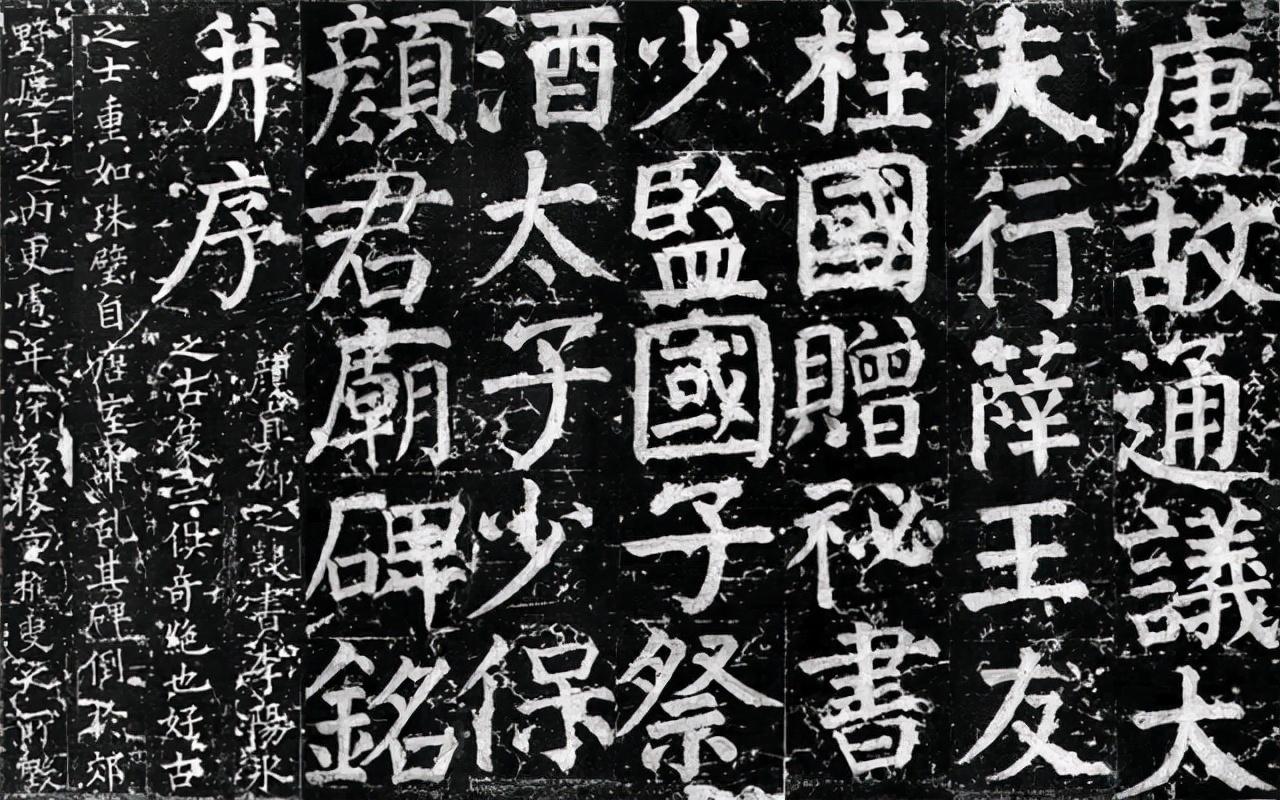 唐故通議大
夫行薛王友
柱國贈祕書
少監國子祭
酒太子少保
顏君廟碑銘
并序
顏真卿之楷書李陽冰
之古篆二俱奇絕也好古
之士重如珠璧自唐室離乱其碑倒於郊
野塵土之內更慮年深為叟之所毀